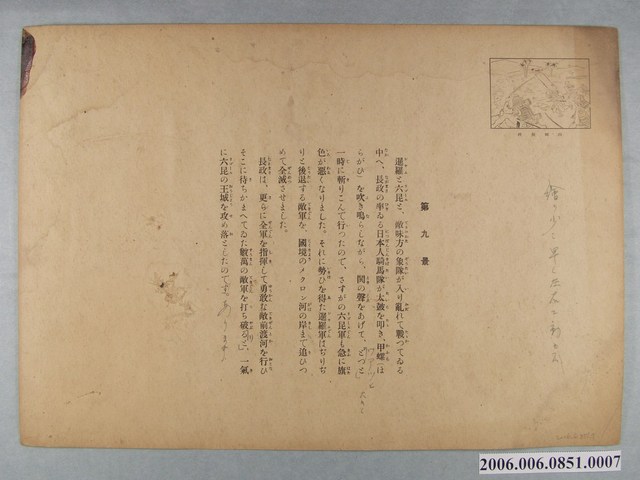 第九景
暹羅と六昆と、敵味方の象隊が入り亂れて戰つてゐる
中へ、長政の率ゐる日本人騎馬隊が太鼓を叩き、甲螺(ほ
らがひ)を吹き鳴らしながら、鬨の聲をあげて、どつと
一時に斬りこんで行つたので、さすがの六昆軍も急に旗
色が惡くなりました。それに勢ひを得た暹羅軍はぢりぢ
りと後退する敵軍を、國境のメクロン河の岸まで追ひつ
めて全滅させました。
長政は、更らに全軍を指揮して勇敢な敵前渡河を行ひ
そこに待ちかまへてゐた數萬の敵軍を打ち破り、一氣
に六昆の王城を攻め落としたのです。
あります
2006.006.0851.0007